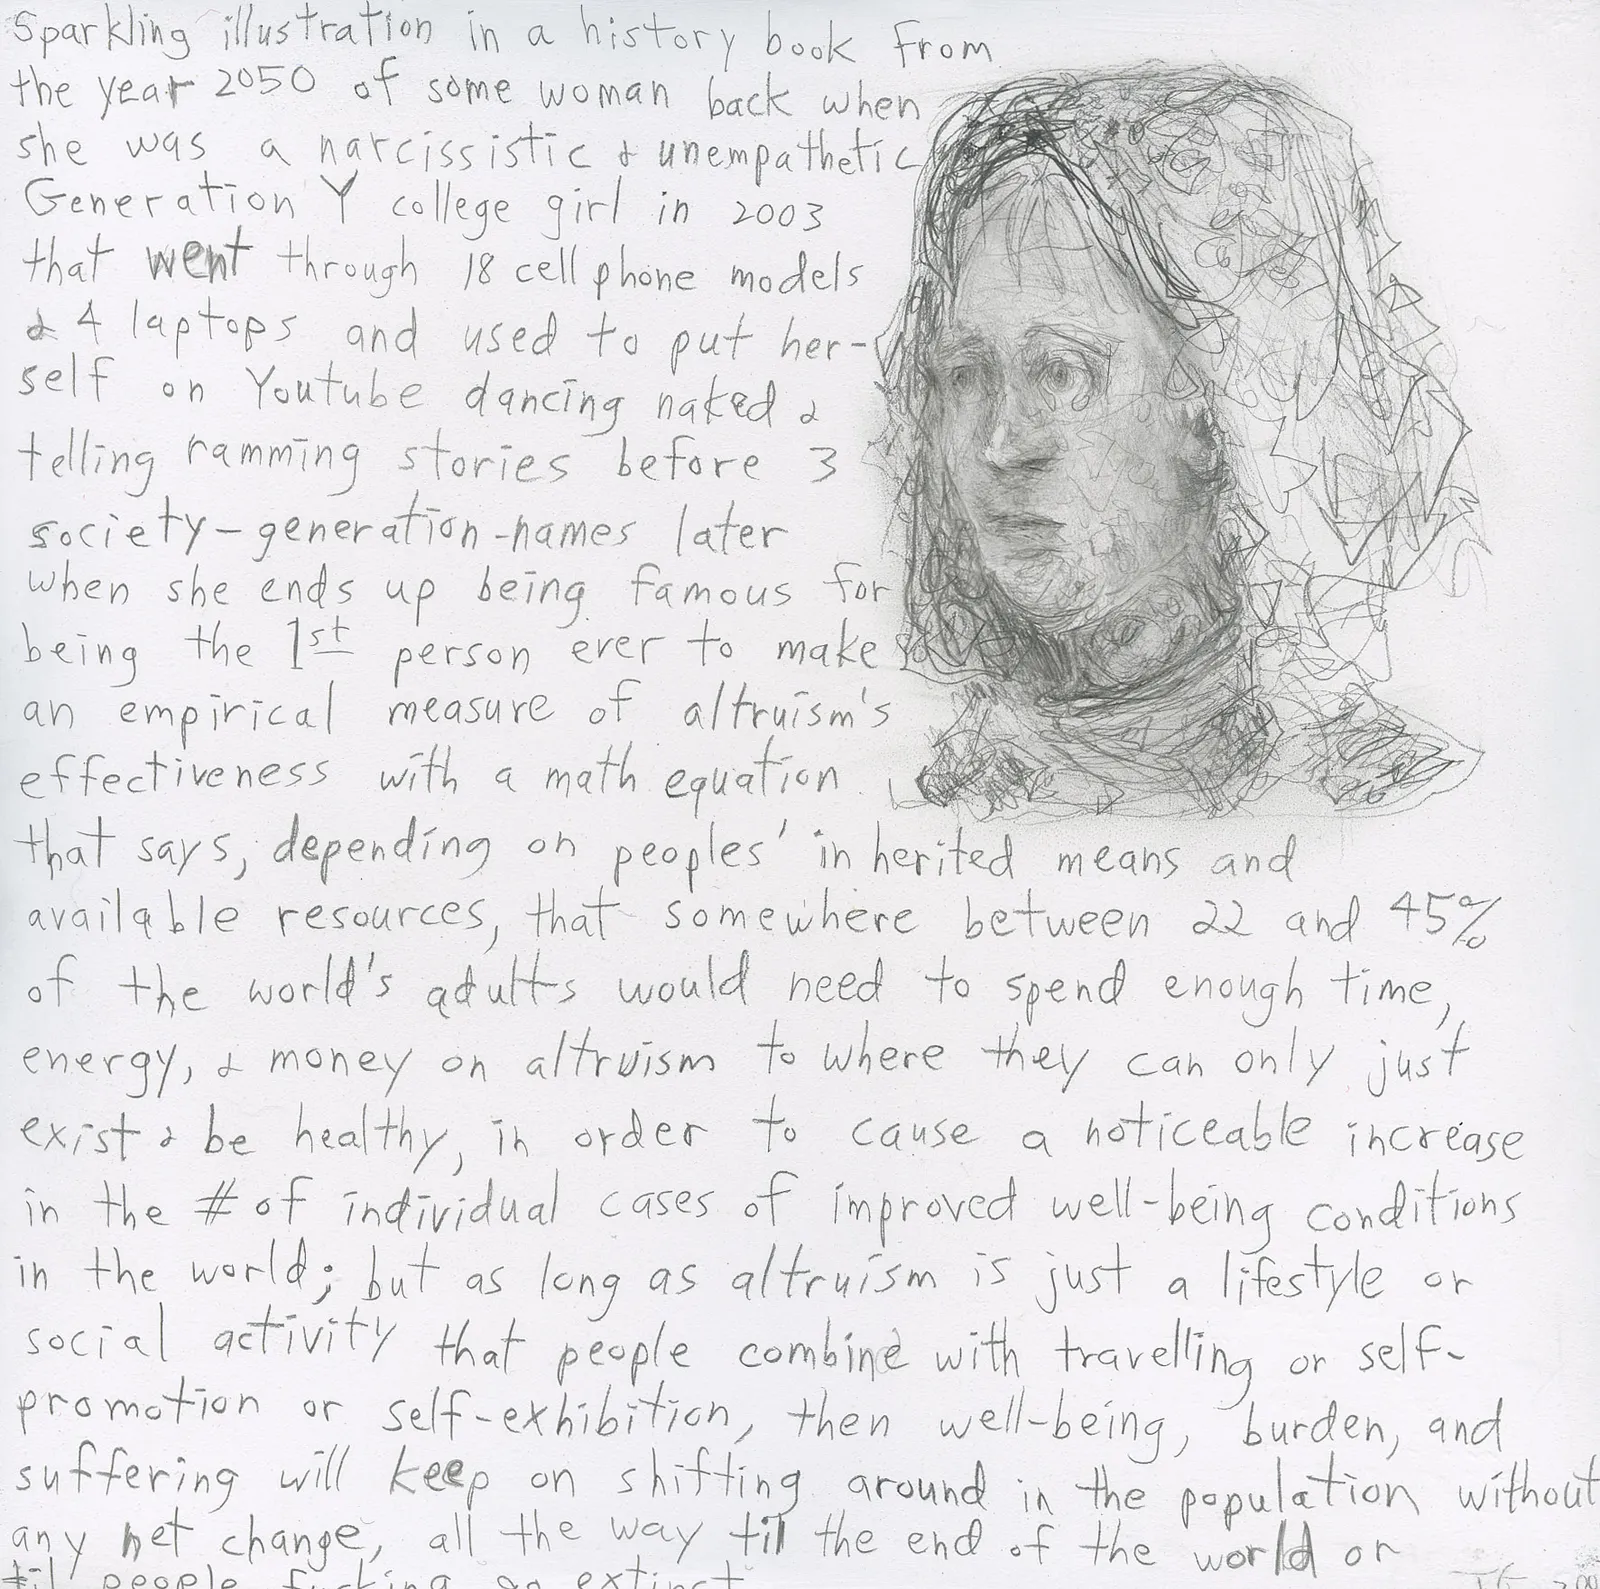 Sparkling illustration in a history book from
the year 2050 of some woman back when
she was a narcissistic & unempathetic
Generation Y college girl in 2003
that went through 18 cell phone models
& 4 laptops and used to put her-
self on Youtube dancing naked &
telling ramming stories before 3
society-generation-names later
when she ends up being famous for
being the 1st person ever to make
an empirical measure of altruism's
effectiveness with a math equation
that says, depending on peoples' inherited means and
available resources, that somewhere between 22 and 45%
of the world's adults would need to spend enough time,
energy, & money on altruism to where they can only just
exist & be healthy, in order to cause a noticeable increase
in the # of individual cases of improved well-being conditions
in the world; but as long as altruism is just a lifestyle or
social activity that people combine with travelling or self-
promotion or self-exhibition, then well-being, burden, and
suffering will keep on shifting around in the population without
any net change, all the way til the end of the world or
til people fucking go extinct